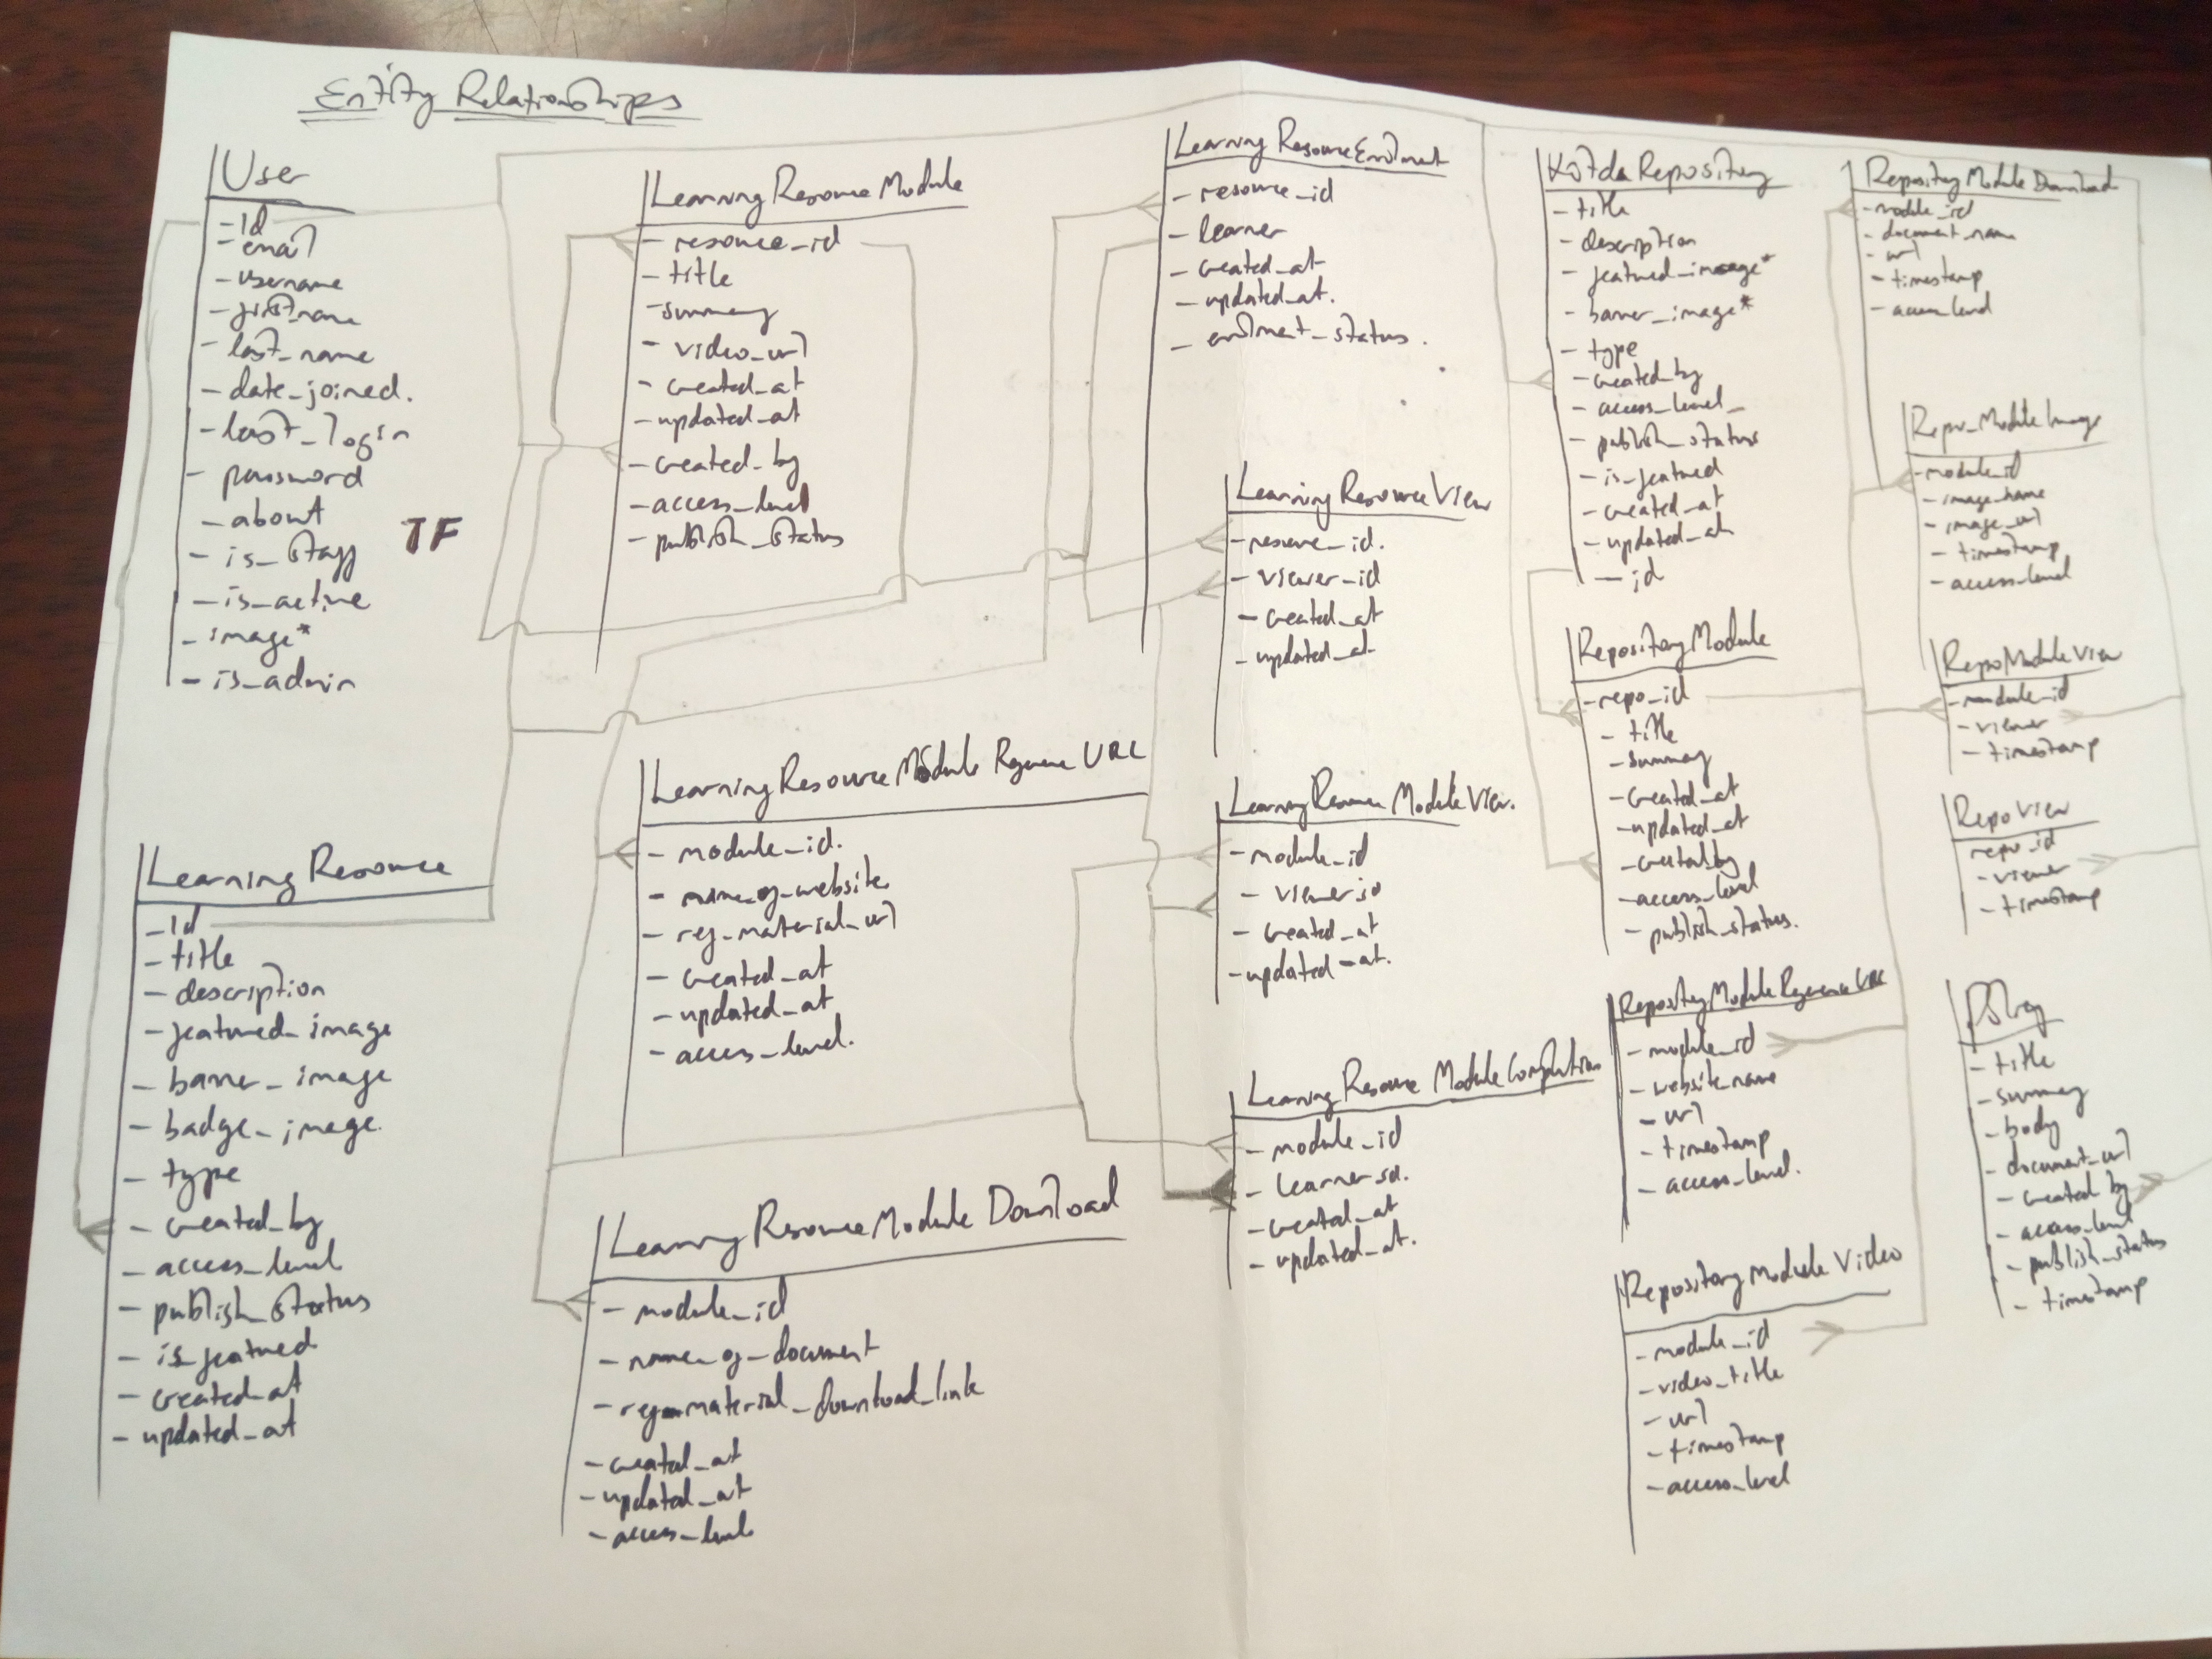 Entity Relationships
User
- id
- email
- username
- first_name
- last_name
- date_joined.
- last_login
- password
- about
- is_staff
TF
- is_active
- image*
- is_admin
Learning Resource
- id
- title
- description
- featured_image
- banner_image
- badge_image.
- type
- created_by
- access_level
- publish_status
- is_featured
- created_at
- updated_at
Learning Resource Module
- resource_id
- title
- summary
- video_url
- created_at
- updated_at
- created_by
- access_level
- publish_status
Learning Resource Module Reference URL
- module_id.
- name_of_website
- ref_material_url
- created_at
- updated_at
- access_level.
Learning Resource Module Download
- module_id
- name_of_document
- ref_material_download_link
- created_at
- updated_at
- access_level
Learning Resource Enrolment
- resource_id
- learner
- created_at
- updated_at.
- enrolment_status.
Learning Resource View
- resource_id.
- viewer_id
- created_at
- updated_at
Learning Resource Module View.
- module_id
- viewer_id
- created_at
- updated_at.
Learning Resource Module Completion
- module_id
- learner_id.
- created_at
- updated_at.
Repository
- title
- description
- featured_image*
- banner_image*
- type
- created_by
- access_level
- publish_status
- is_featured
- created_at
- updated_at
- id
Repository Module
- repo_id
- title
- summary
- created_at
- updated_at
- created_by
- access_level
- publish_status.
Repository Module Reference URL
- module_id
- website_name
- url
- timestamp
- access_level.
Repository Module Video
- module_id
- video_title
- url
- timestamp
- access_level
Repository Module Download
- module_id
- document_name
- url
- timestamp
- access_level
Repo_Module Image
- module_id
- image_name
- image_url
- timestamp
- access_level
Repo Module View
- module_id
- viewer
- timestamp
Repo View
repo_id
- viewer
- timestamp
- title
- summary
- body
- document_url
- created_by
- access_level
- publish_status
- timestamp